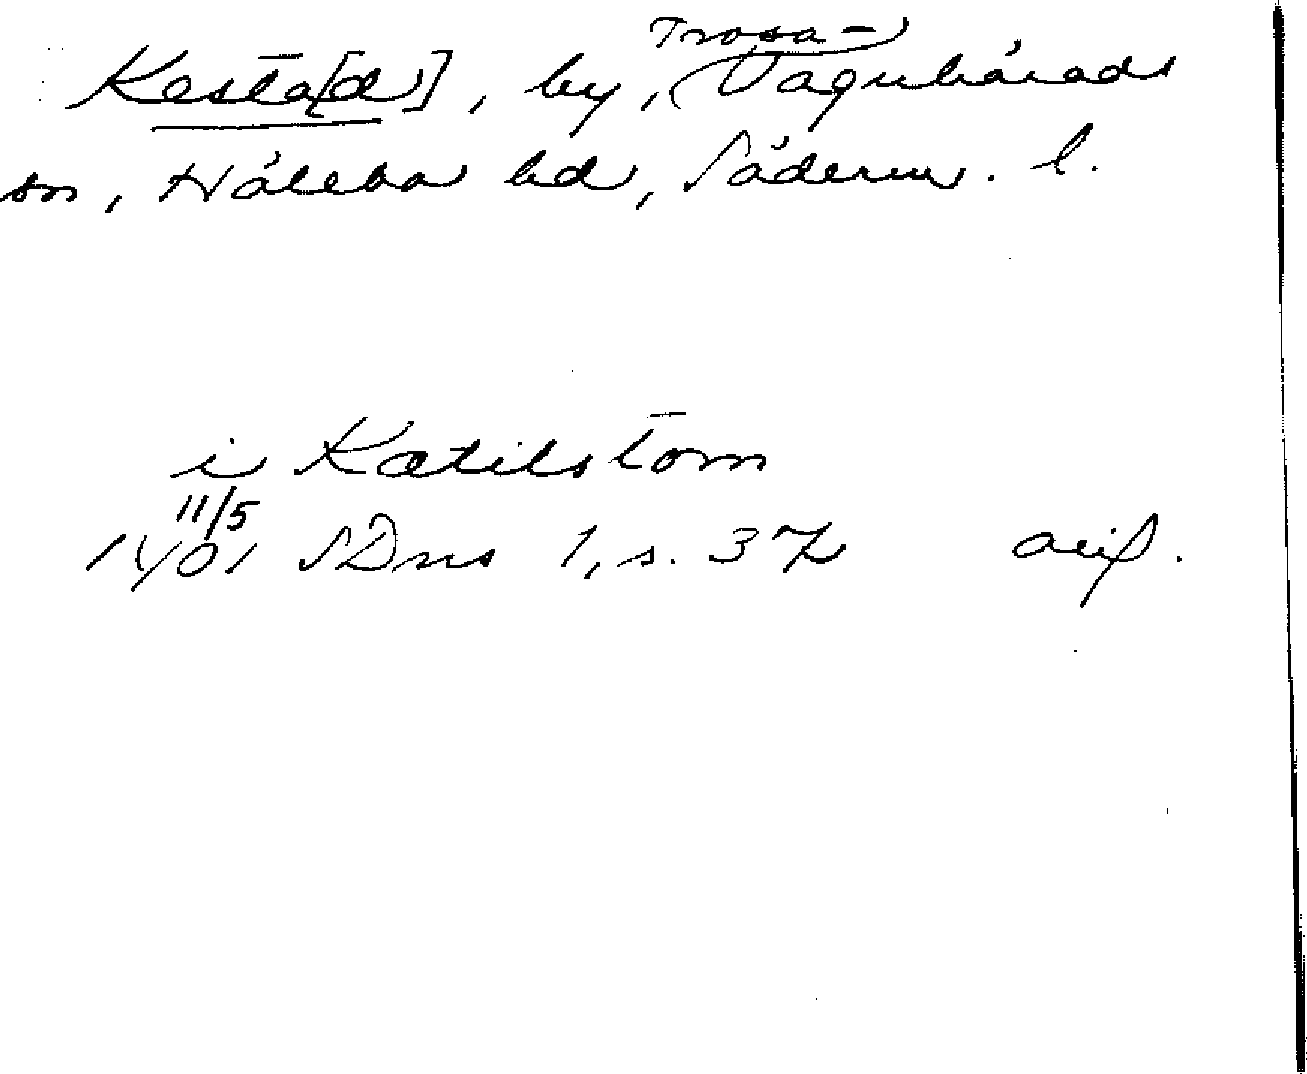 Kesta[d], by, (Trosa-) Vagnhärads
sn, Hölebo hd, Söderm. l.
i Katilstom
11/5
1401 SDns 1, s. 37 avskr.